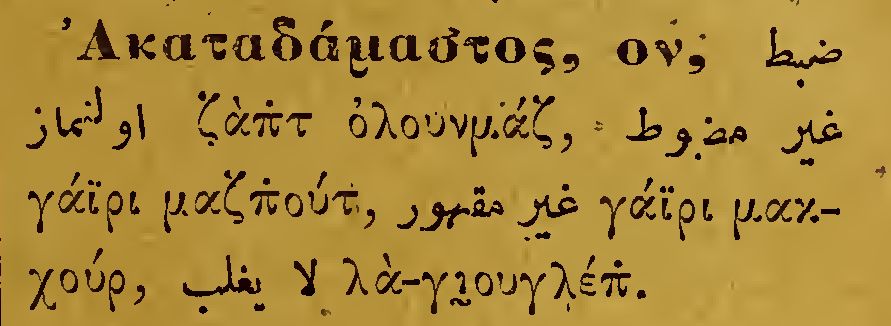 Ἀκαταδάμαστος, ον, ضبط
اولنماز ζὰπ̇τ ὀλουνμάζ, غیر مضبوط
γάϊρι μαζπ̇ούτ, غیر مقهور γάϊρι μακ-
χούρ, لا یغلب λὰ-γιουγλέπ̇.